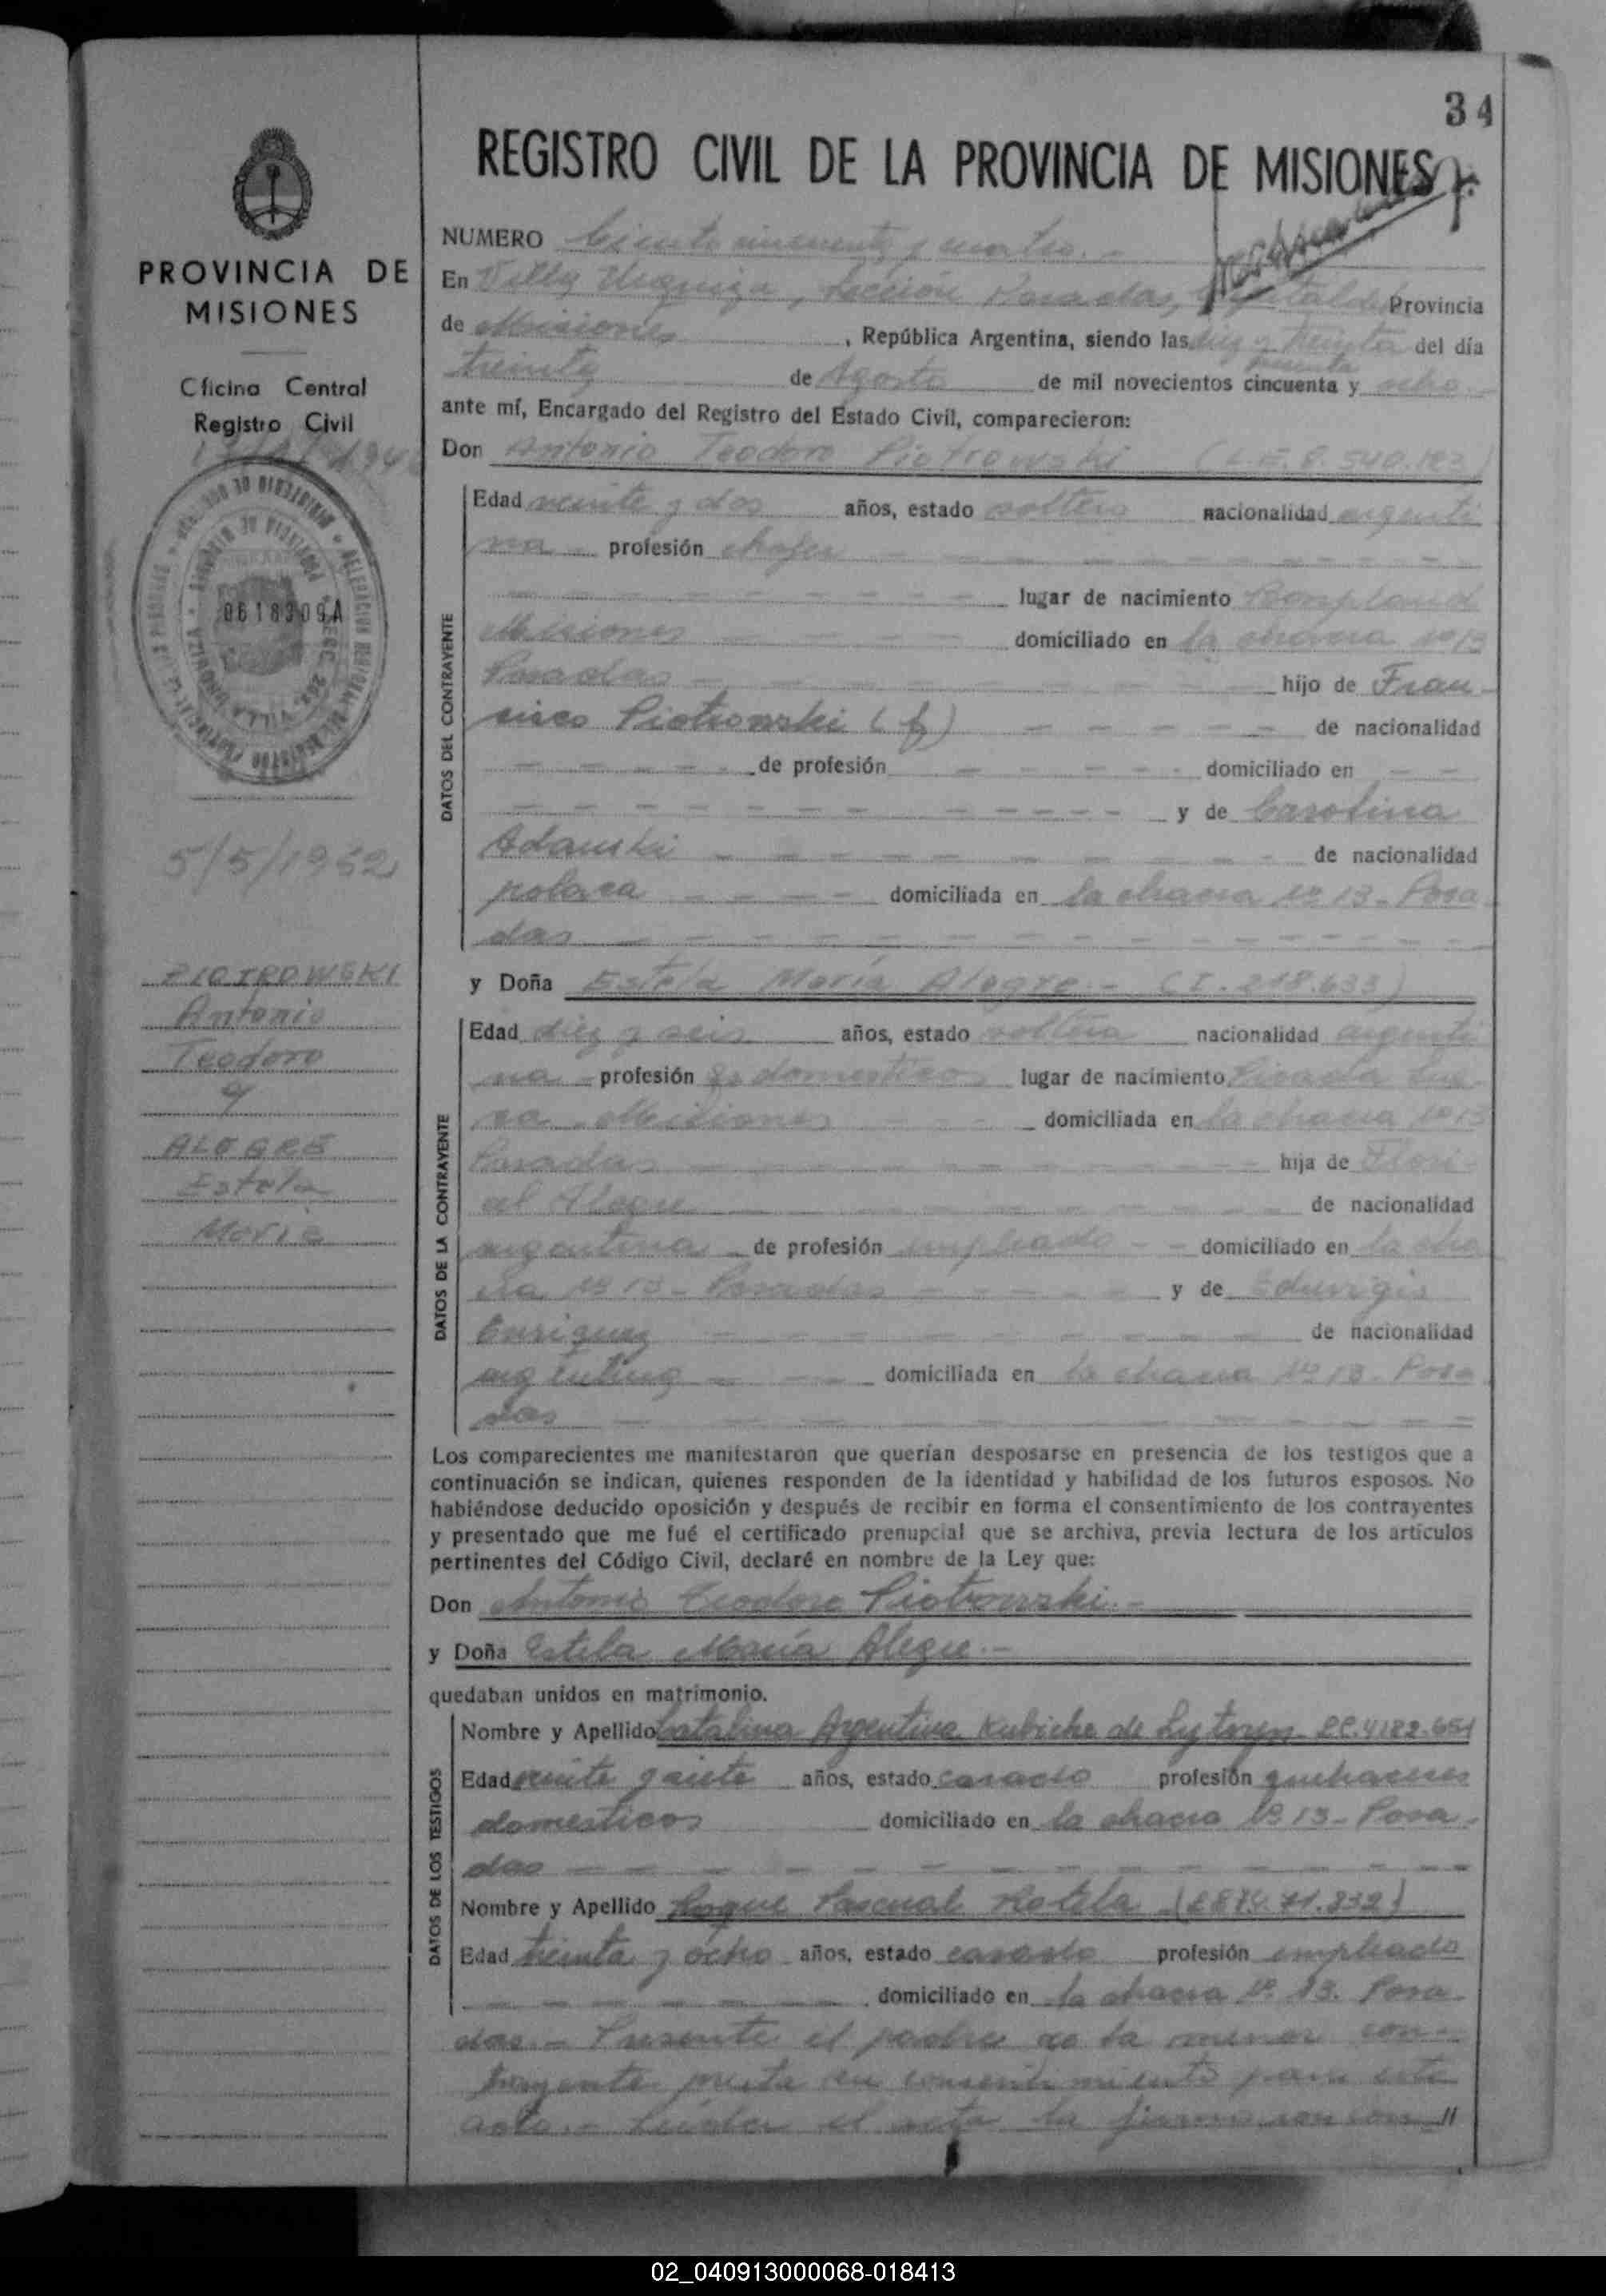 34
REGISTRO CIVIL DE LA PROVINCIA DE MISIONES
PROVINCIA DE
MISIONES
Oficina Central
Registro Civil
0618309A
5/5/1962
PIOTROWSKI
Antonio
Teodoro
y
ALEGRE
Estela
María
NUMERO Ciento cincuenta y cuatro.-
En Villa Urquiza, Sección Posadas, Capital de la Provincia
de Misiones, República Argentina, siendo las diez y treinta del día
treinta de Agosto de mil novecientos cincuenta y ocho
sesenta
ante mí, Encargado del Registro del Estado Civil, comparecieron:
Don Antonio Teodoro Piotrowski (L.E. 8.540.183)
DATOS DEL CONTRAYENTE
Edad veinte y dos años, estado soltero nacionalidad argenti
na profesión chofer
lugar de nacimiento Bonpland
Misiones domiciliado en la chacra Nº 13
Posadas hijo de Fran-
cisco Piotrowski (f) de nacionalidad
de profesión domiciliado en
y de Carolina
Adanski de nacionalidad
polaca domiciliada en la chacra Nº 13 - Posa
das
y Doña Estela María Alegre.- (I. 218.633)
DATOS DE LA CONTRAYENTE
Edad diez y seis años, estado soltera nacionalidad argenti
na - profesión qs domesticos lugar de nacimiento Picada
Misiones domiciliada en la chacra Nº 13
Posadas hija de Flori-
al Alegre de nacionalidad
argentina de profesión empleado domiciliado en la cha
cra Nº 13 - Posadas y de Eduvigis
Enriquez de nacionalidad
argentina domiciliada en la chacra Nº 13 - Posa
das
Los comparecientes me manifestaron que querían desposarse en presencia de los testigos que a
continuación se indican, quienes responden de la identidad y habilidad de los futuros esposos. No
habiéndose deducido oposición y después de recibir en forma el consentimiento de los contrayentes
y presentado que me fué el certificado prenupcial que se archiva, previa lectura de los artículos
pertinentes del Código Civil, declaré en nombre de la Ley que:
Don Antonio Teodoro Piotrowski.-
y Doña Estela María Alegre.-
quedaban unidos en matrimonio.
DATOS DE LOS TESTIGOS
Nombre y Apellido Catalina Argentina Kubiche de
Edad veinte y siete años, estado casado profesión quehaceres
domesticos domiciliado en la chacra Nº 13 - Posa-
das
Nombre y Apellido Roque Pascual Rotela
Edad treinta y ocho años, estado casado profesión empleado
domiciliado en la chacra Nº 13. Posa
das.- Presente el padre de la menor con-
trayente presta su consentimiento para este
acto.- Leída el acta la firman con con//
02_040913000068-018413